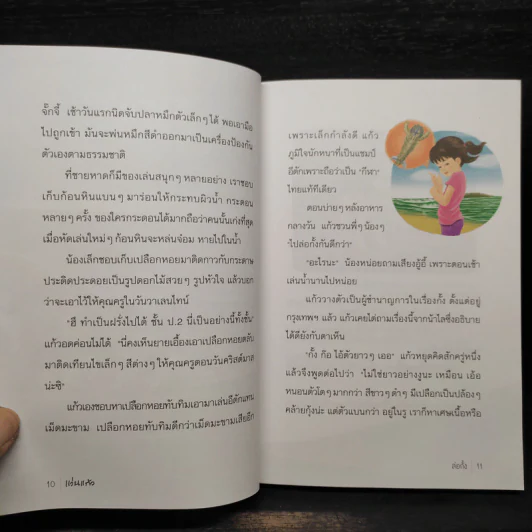 จั๊กจี้ เช้าวันแรกนิดจับปลาหมึกตัวเล็กๆ ได้ พอเอามือ
ไปถูกเข้า มันจะพ่นหมึกสีดำออกมาเป็นเครื่องป้องกัน
ตัวเองตามธรรมชาติ
ที่ชายหาดก็มีของเล่นสนุกๆ หลายอย่าง เราชอบ
เก็บก้อนหินแบนๆ มาร่อนให้กระทบผิวน้ำ กระดอน
หลายๆ ครั้ง ของใครกระดอนได้มากถือว่าคนนั้นเก่งที่สุด
เมื่อหัดเล่นใหม่ๆ ก้อนหินจะหล่นจ๋อม หายไปในน้ำ
น้องเล็กชอบเก็บเปลือกหอยมาติดกาวกับกระดาษ
ประดิดประดอยเป็นรูปดอกไม้สวยๆ รูปหัวใจ แล้วบอก
ว่าจะเอาไว้ให้คุณครูในวันวาเลนไทน์
"ฮึ ทำเป็นฝรั่งไปได้ ชั้น ป.2 นี่เป็นอย่างนี้ทั้งชั้น"
แก้วอดค่อนไม่ได้ "นี่คงเห็นยายเอื้องเอาเปลือกหอยตลับ
มาติดเทียนไขเล็กๆ สีต่างๆ ให้คุณครูตอนวันคริสต์มาส
น่ะซิ"
แก้วเองชอบหาเปลือกหอยทับทิมเอามาเล่นอีตักแทน
เม็ดมะขาม เปลือกหอยทับทิมดีกว่าเม็ดมะขามเสียอีก
10 แก้วจอมซน
เพราะเล็กกำลังดี แก้ว
ภูมิใจนักหนาที่เป็นแชมป์
อีตักเพราะถือว่าเป็น "กีฬา"
ไทยแท้ทีเดียว
ตอนบ่ายๆ หลังอาหาร
กลางวัน แก้วชวนพี่ๆ น้องๆ
"ไปล่อกั้งกันดีกว่า"
"อะไรนะ" น้องหน่อยถามเสียงอู้อี้ เพราะตอนเช้า
เล่นน้ำนานไปหน่อย
แก้ววางตัวเป็นผู้ชำนาญการในเรื่องกั้ง ตั้งแต่อยู่
กรุงเทพฯ แล้ว แก้วเคยไต่ถามเรื่องนี้จากน้าไลซึ่งอธิบาย
ได้ดียังกับตาเห็น
"กั้ง ก้อ ไอ้ตัวยาวๆ เออ" แก้วหยุดคิดสักครู่หนึ่ง
แล้วจึงพูดต่อไปว่า "ไม่ใช่ยาวอย่างงูนะ เหมือน เอ้อ
หนอนตัวโตๆ มากกว่า สีขาวๆ ดำๆ มีเปลือกเป็นปล้องๆ
คล้ายกุ้งน่ะ แต่ตัวแบนกว่า อยู่ในรู เราก็หาเศษเนื้อหรือ
ล่อกั้ง 11